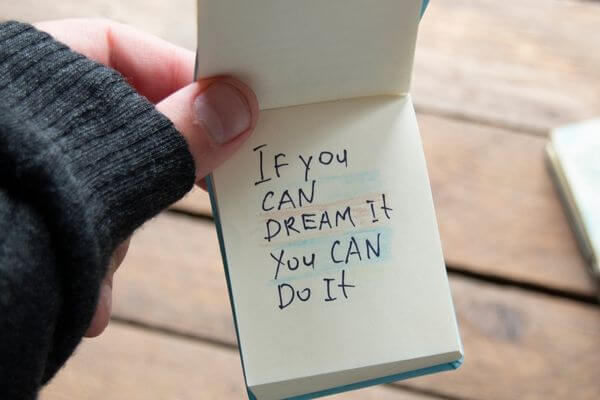 If you
CAN
DREAM It
you CAN
Do It